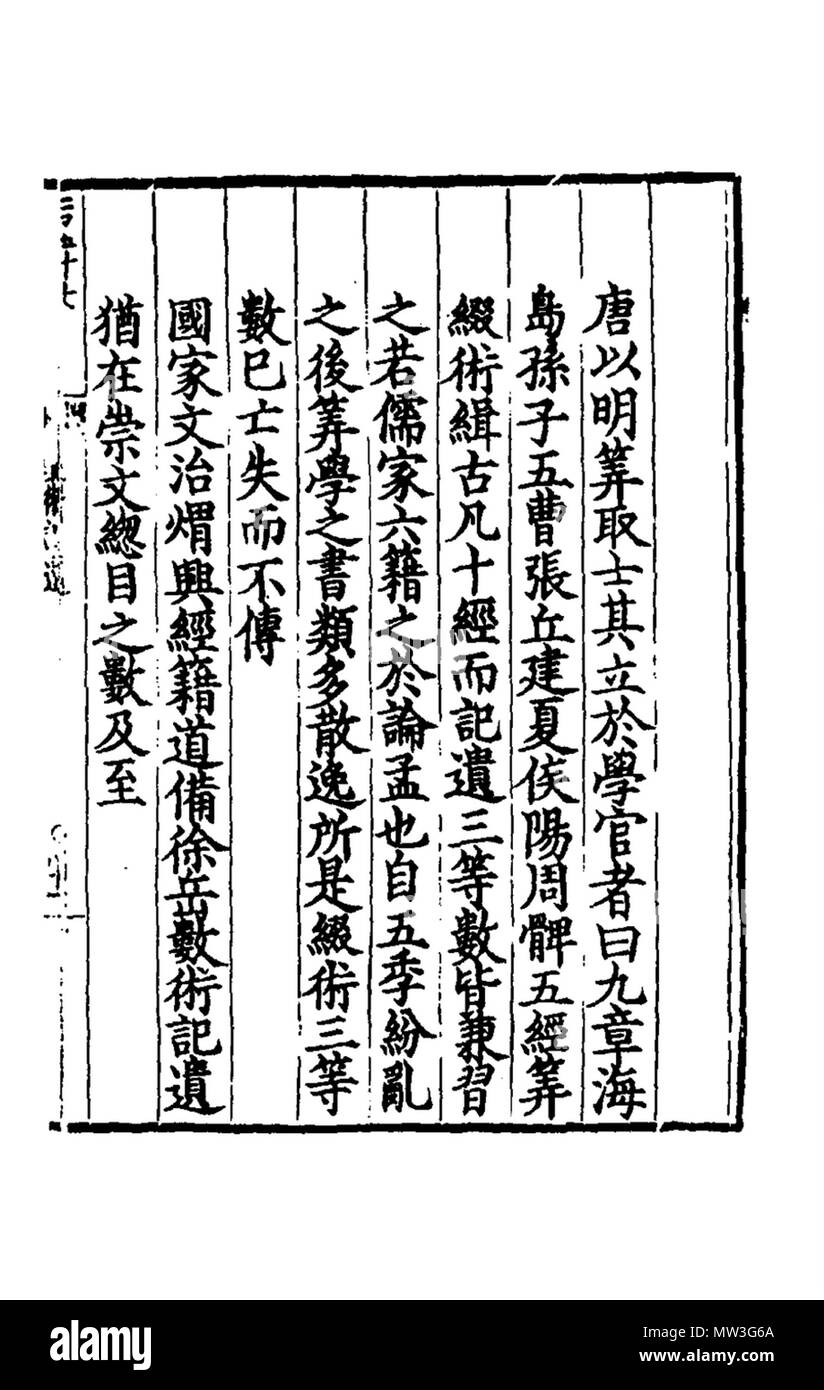 唐以明筭取士其立於學官者曰九章海
島孫子五曹張丘建夏侯陽周髀五經筭
綴術緝古凡十經而記遺三等數皆兼習
之若儒家六籍之於論孟也自五季紛亂
之後筭學之書類多散逸所是綴術三等
數已亡失而不傳
國家文治煟興經籍道備徐岳數術記遺
猶在崇文緫目之數及至
alamy
Image ID: MW3G6A
www.alamy.com